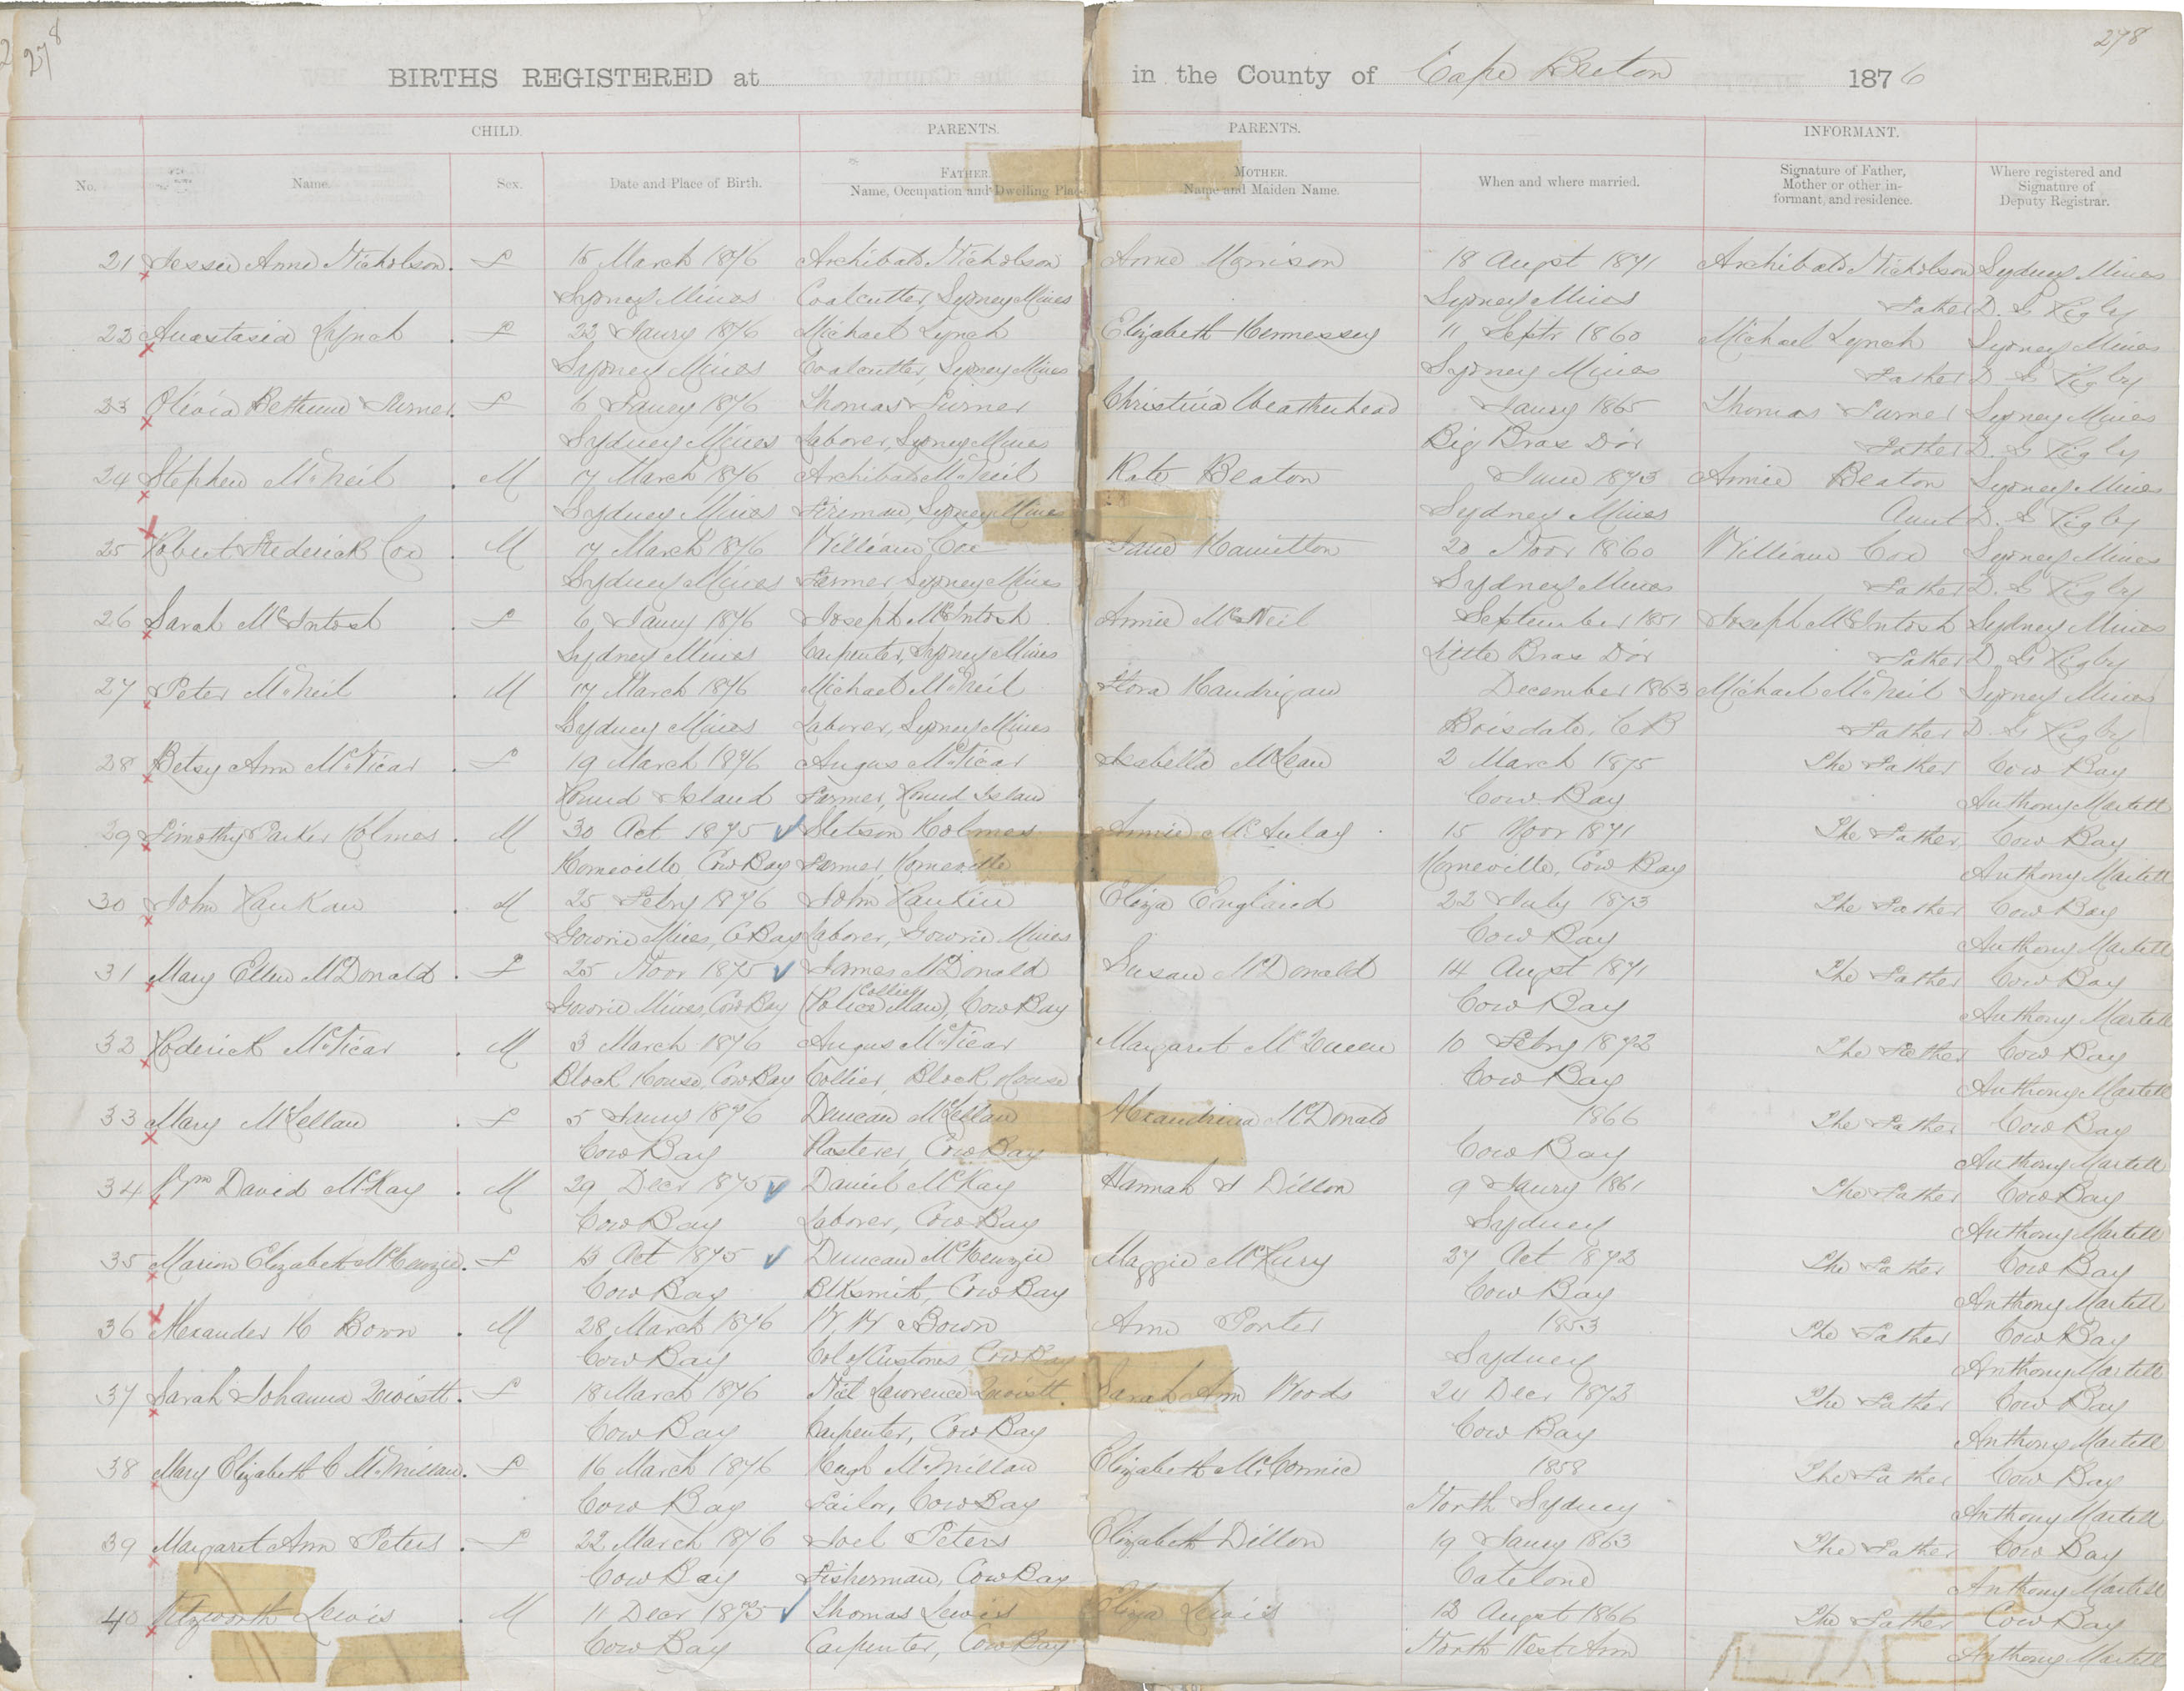 278
278
BIRTHS REGISTERED at in the County of Cape Breton 1876
CHILD. PARENTS. PARENTS. INFORMANT.
No. Name. Sex. Date and Place of Birth. FATHER. Name, Occupation and Dwelling Place MOTHER. Name and Maiden Name. When and where married. Signature of Father, Mother or other informant, and residence. Where registered and Signature of Deputy Registrar.
21 Jessie Anne Nicholson. F 15 March 1876 Archibald Nicholson Anne Morrison 18 Augst 1871 Archibald Nicholson Sydney Mines
Sydney Mines Coalcutter, Sydney Mines Sydney Mines Father D. G Rigby
22 Anastasia Lynch . F 22 Jany 1876 Michael Lynch Elizabeth Hennessey 11 Septr 1860 Michael Lynch Sydney Mines
Sydney Mines Coalcutter, Sydney Mines Sydney Mines Father D. G Rigby
23 Olivia Bethune Turner. F 6 Jany 1876 Thomas Turner Christina Weatherhead Jany 1865 Thomas Turner Sydney Mines
Sydney Mines Laborer, Sydney Mines Big Bras D'or Father D. G Rigby
24 Stephen McNeil . M 17 March 1876 Archibald McNeil Kate Beaton June 1873 Annie Beaton Sydney Mines
Sydney Mines Fireman, Sydney Mines Sydney Mines Aunt D. G Rigby
25 Robert Frederick Cox . M 7 March 1876 William Cox Jane Hamilton 20 Novr 1860 William Cox Sydney Mines
Sydney Mines Farmer, Sydney Mines Sydney Mines Father D. G Rigby
26 Sarah McIntosh . F 6 Jany 1876 Joseph McIntosh Annie McNeil September 1851 Joseph McIntosh Sydney Mines
Sydney Mines Carpenter, Sydney Mines Little Bras D'or Father D. G Rigby
27 Peter McNeil . M 17 March 1876 Michael McNeil Flora Handrigan December 1863 Michael McNeil Sydney Mines
Sydney Mines Laborer, Sydney Mines Boisdale, C B Father D. G Rigby
28 Betsy Ann McVicar . F 19 March 1876 Angus McVicar Isabella McLean 2 March 1875 The Father Cow Bay
Round Island Farmer, Round Island Cow Bay Anthony Martell
29 Timothy Parker Holmes . M 30 Oct 1875 Stetson Holmes Annie McAulay 15 Novr 1871 The Father Cow Bay
Homeville, Cow Bay Farmer, Homeville Homeville, Cow Bay Anthony Martell
30 John Rankan . M 25 Febry 1876 John Rankin Eliza England 22 July 1873 The Father Cow Bay
Gowrie Mines, C Bay Laborer, Gowrie Mines Cow Bay Anthony Martell
31 Mary Ellen McDonald . F 25 Novr 1875 James McDonald Susan McDonald 14 Augst 1871 The Father Cow Bay
Gowrie Mines, Cow Bay (Police Man), Collier Cow Bay Cow Bay Anthony Martell
32 Roderick McVicar . M 3 March 1876 Angus McVicar Margaret McQueen 10 Febry 1872 The Father Cow Bay
Block House, Cow Bay Collier Block House Cow Bay Anthony Martell
33 Mary McLellan . F 5 Jany 1876 Duncan McLellan Alexandrina McDonald 1866 The Father Cow Bay
Cow Bay Plasterer, Cow Bay Cow Bay Anthony Martell
34 Wm David McKay . M 29 Decr 1875 Daniel McKay Hannah J Dillon 9 Jany 1861 The Father Cow Bay
Cow Bay Laborer, Cow Bay Sydney Anthony Martell
35 Marion Elizabeth McKenzie. F 13 Oct 1875 Duncan McKenzie Maggie 27 Oct 1872 The Father Cow Bay
Cow Bay Blksmith, Cow Bay Cow Bay Anthony Martell
36 Alexander H Bown . M 28 March 1876 W. H Bown Ann Porter 1853 The Father Cow Bay
Cow Bay Col of Customs, Cow Bay Sydney Anthony Martell
37 Sarah Johanna . F 18 March 1876 Niel Lawrence Sarah Ann Woods 24 Decr 1873 The Father Cow Bay
Cow Bay Carpenter, Cow Bay Cow Bay Anthony Martell
38 Mary Elizabeth C McMillan. F 16 March 1876 Hugh McMillan Elizabeth McCormic 1858 The Father Cow Bay
Cow Bay Tailor, Cow Bay North Sydney Anthony Martell
39 Margaret Ann Peters . F 22 March 1876 Joel Peters Elizabeth Dillon 19 Jany 1863 The Father Cow Bay
Cow Bay Fisherman, Cow Bay Catelone Anthony Martell
40 Lewis . M 11 Decr 1875 Thomas Lewis Eliza Lewis 12 Augst 1866 The Father Cow Bay
Cow Bay Carpenter, Cow Bay North West Arm Anthony Martell